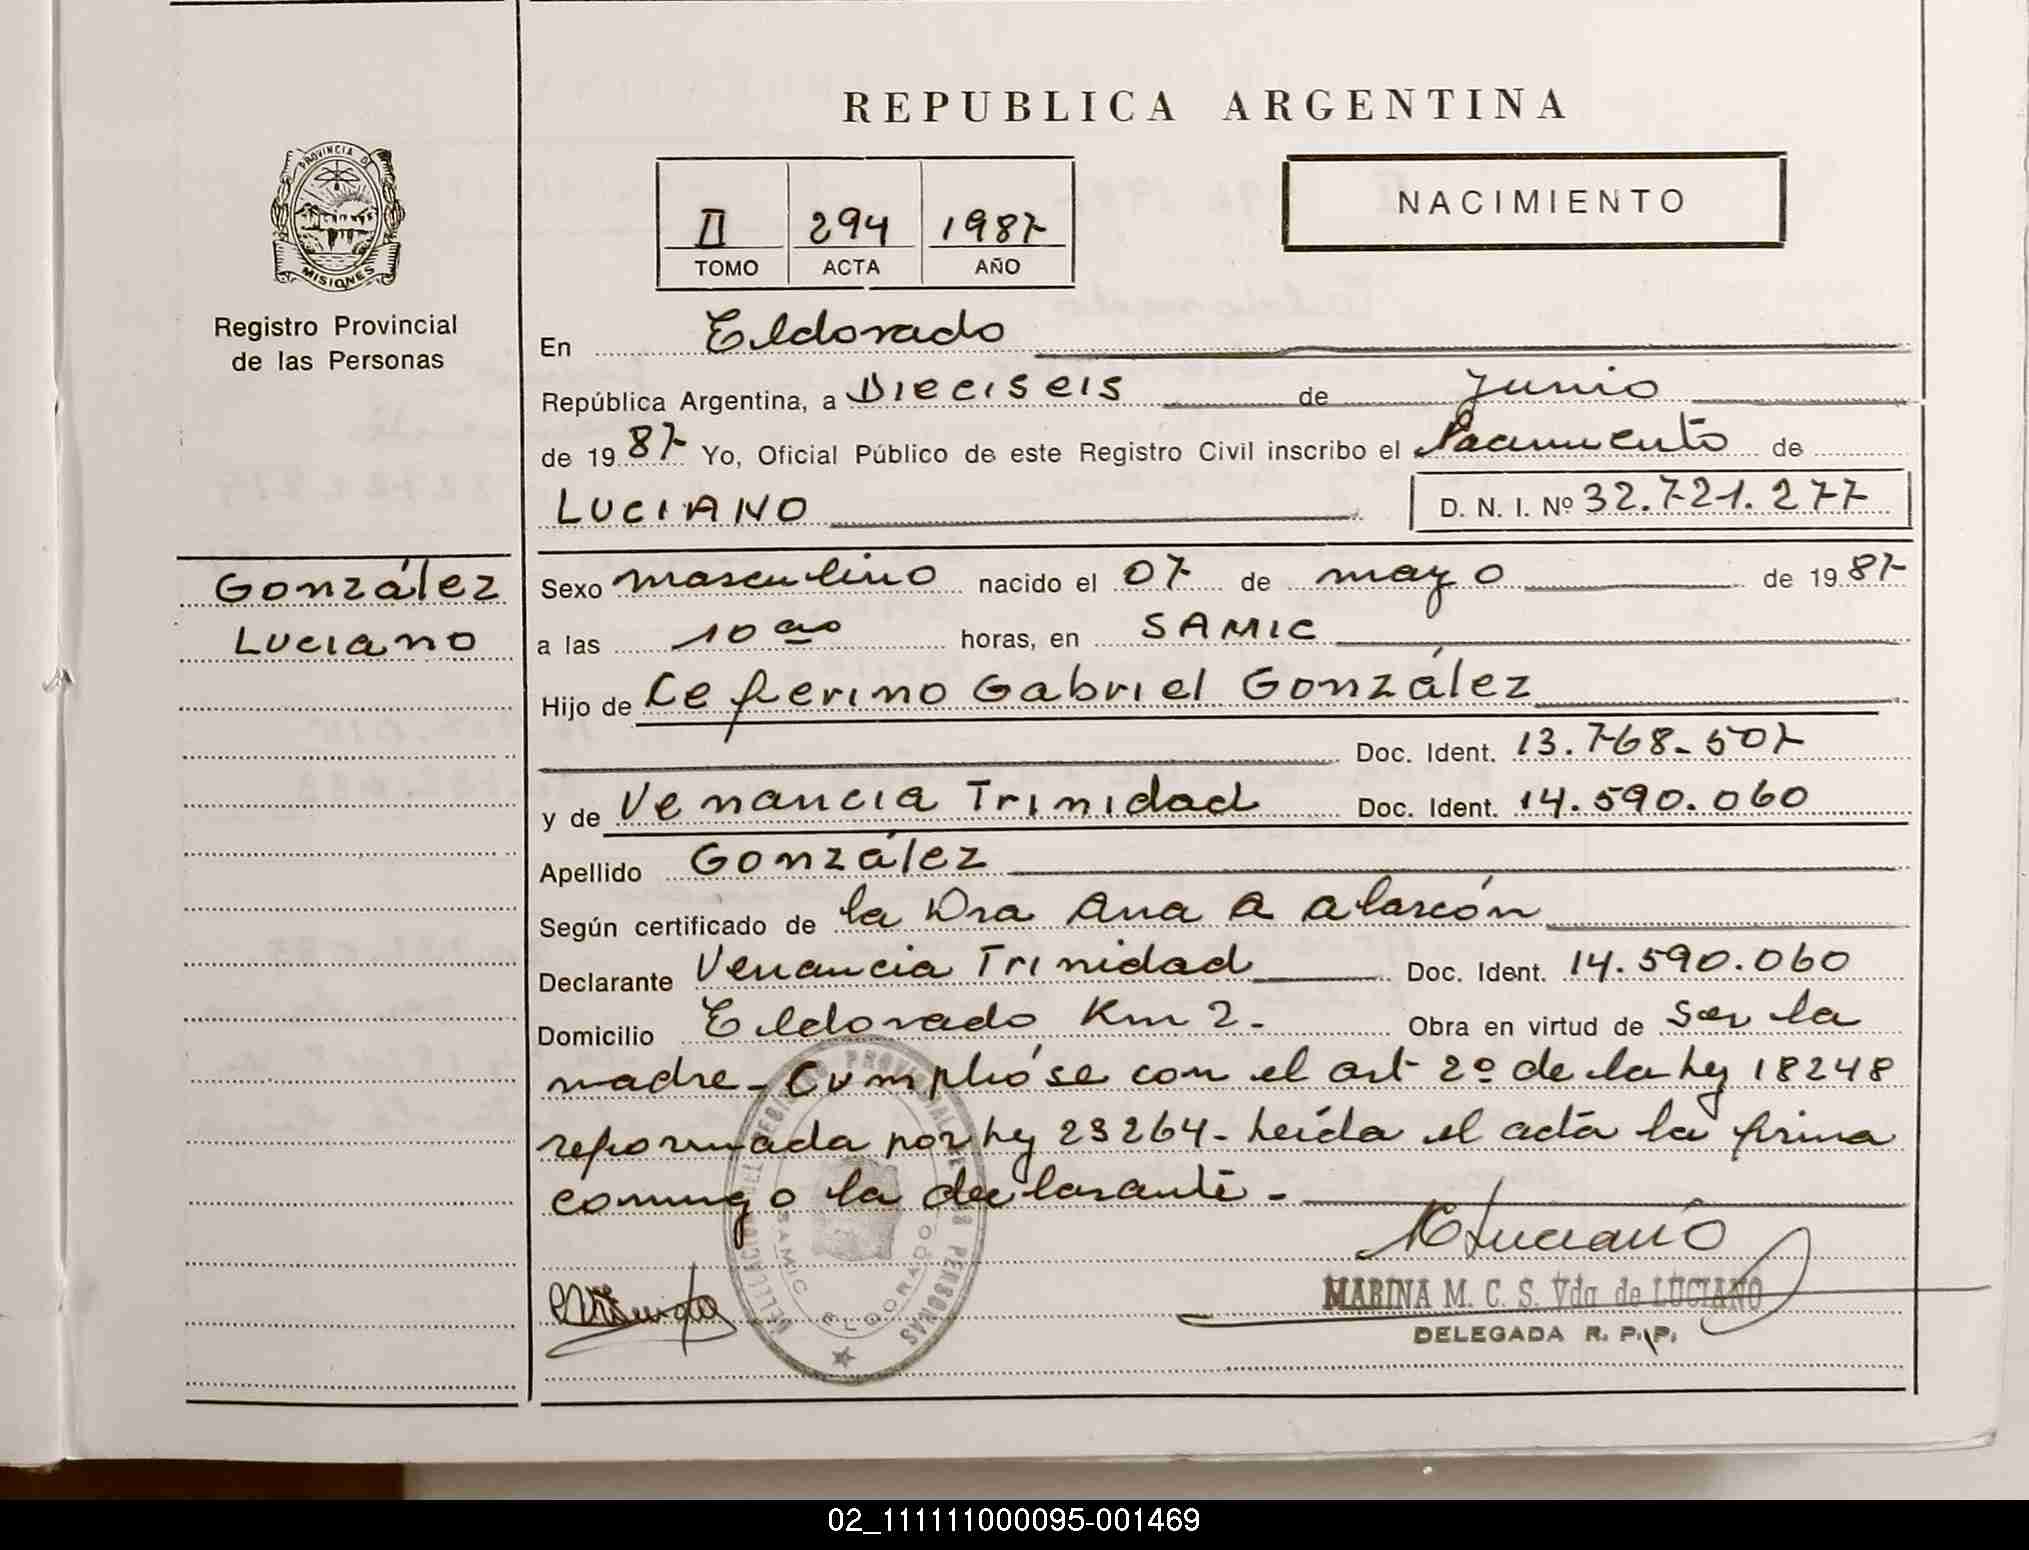 REPUBLICA ARGENTINA
PROVINCIA DE
MISIONES
Registro Provincial
de las Personas
II 294 1987
TOMO ACTA AÑO
NACIMIENTO
En Eldorado
República Argentina, a Dieciseis de Junio
de 1987 Yo, Oficial Público de este Registro Civil inscribo el Nacimiento de
LUCIANO D. N. I. Nº 32.721.277
González
Luciano
Sexo masculino nacido el 07 de mayo de 1987
a las 10 horas, en SAMIC
Hijo de Ceferino Gabriel González
Doc. Ident. 13.768.507
y de Venancia Trinidad Doc. Ident. 14.590.060
Apellido González
Según certificado de la Dra Ana A Alarcón
Declarante Venancia Trinidad Doc. Ident. 14.590.060
Domicilio Eldorado Km 2. Obra en virtud de Ser la
madre. Cumplióse con el art 2º de la ley 18248
reformada por ley 23264. Leída el acta la firma
conmigo la declarante.
DELEGACION DEL REGISTRO PROVINCIAL DE LAS PERSONAS
SAMIC ELDORADO
MARINA M. C. S. Vda de LUCIANO
DELEGADA R. P. P.
02_111111000095-001469